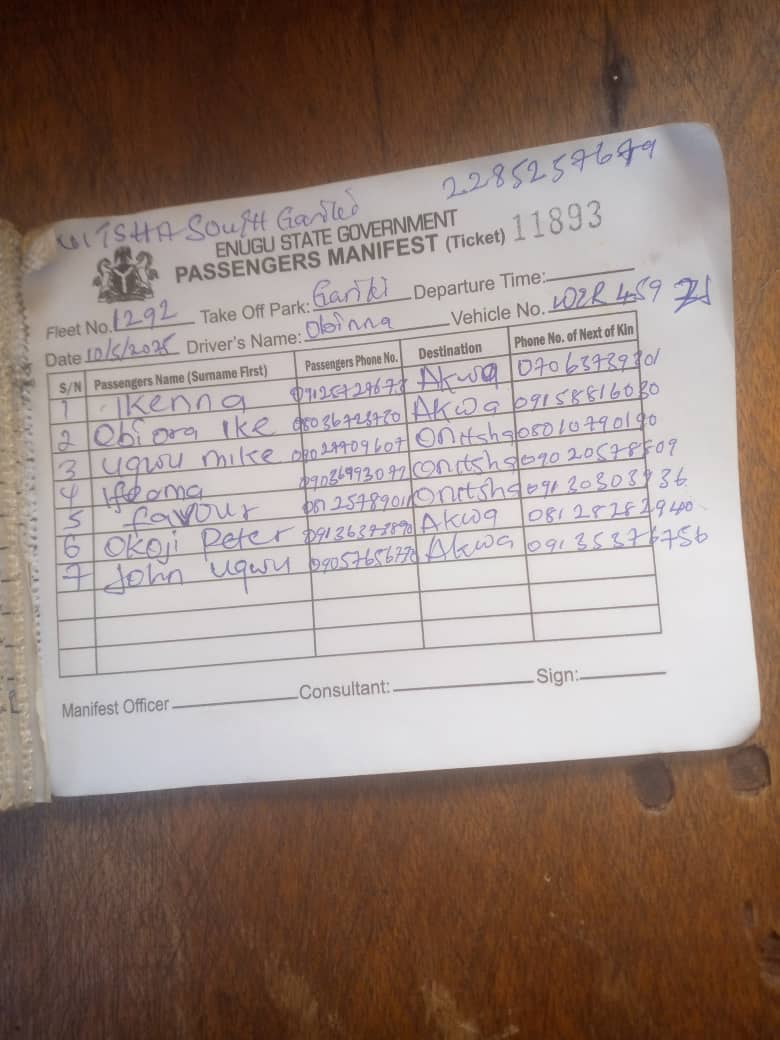 NITSHA South Gariki 2285257679
ENUGU STATE GOVERNMENT
PASSENGERS MANIFEST (Ticket) 11893
Fleet No. 1292 Take Off Park: Gariki Departure Time:
Date 10/5/2025 Driver's Name: Obinna Vehicle No. 459
S/N Passengers Name (Surname First) Passengers Phone No. Destination Phone No. of Next of Kin
1 Ikenna Akwa
2 Obiora Ike Akwa 09158816030
3 Ugwu mike Onitsha 08010790190
4 Ifeoma 09036993077 Onitsha 09020578809
5 favour Onitsha 09130303936
6 Okoji Peter Akwa 08128282940
7 John Ugwu Akwa 09135376756
Manifest Officer Consultant: Sign: